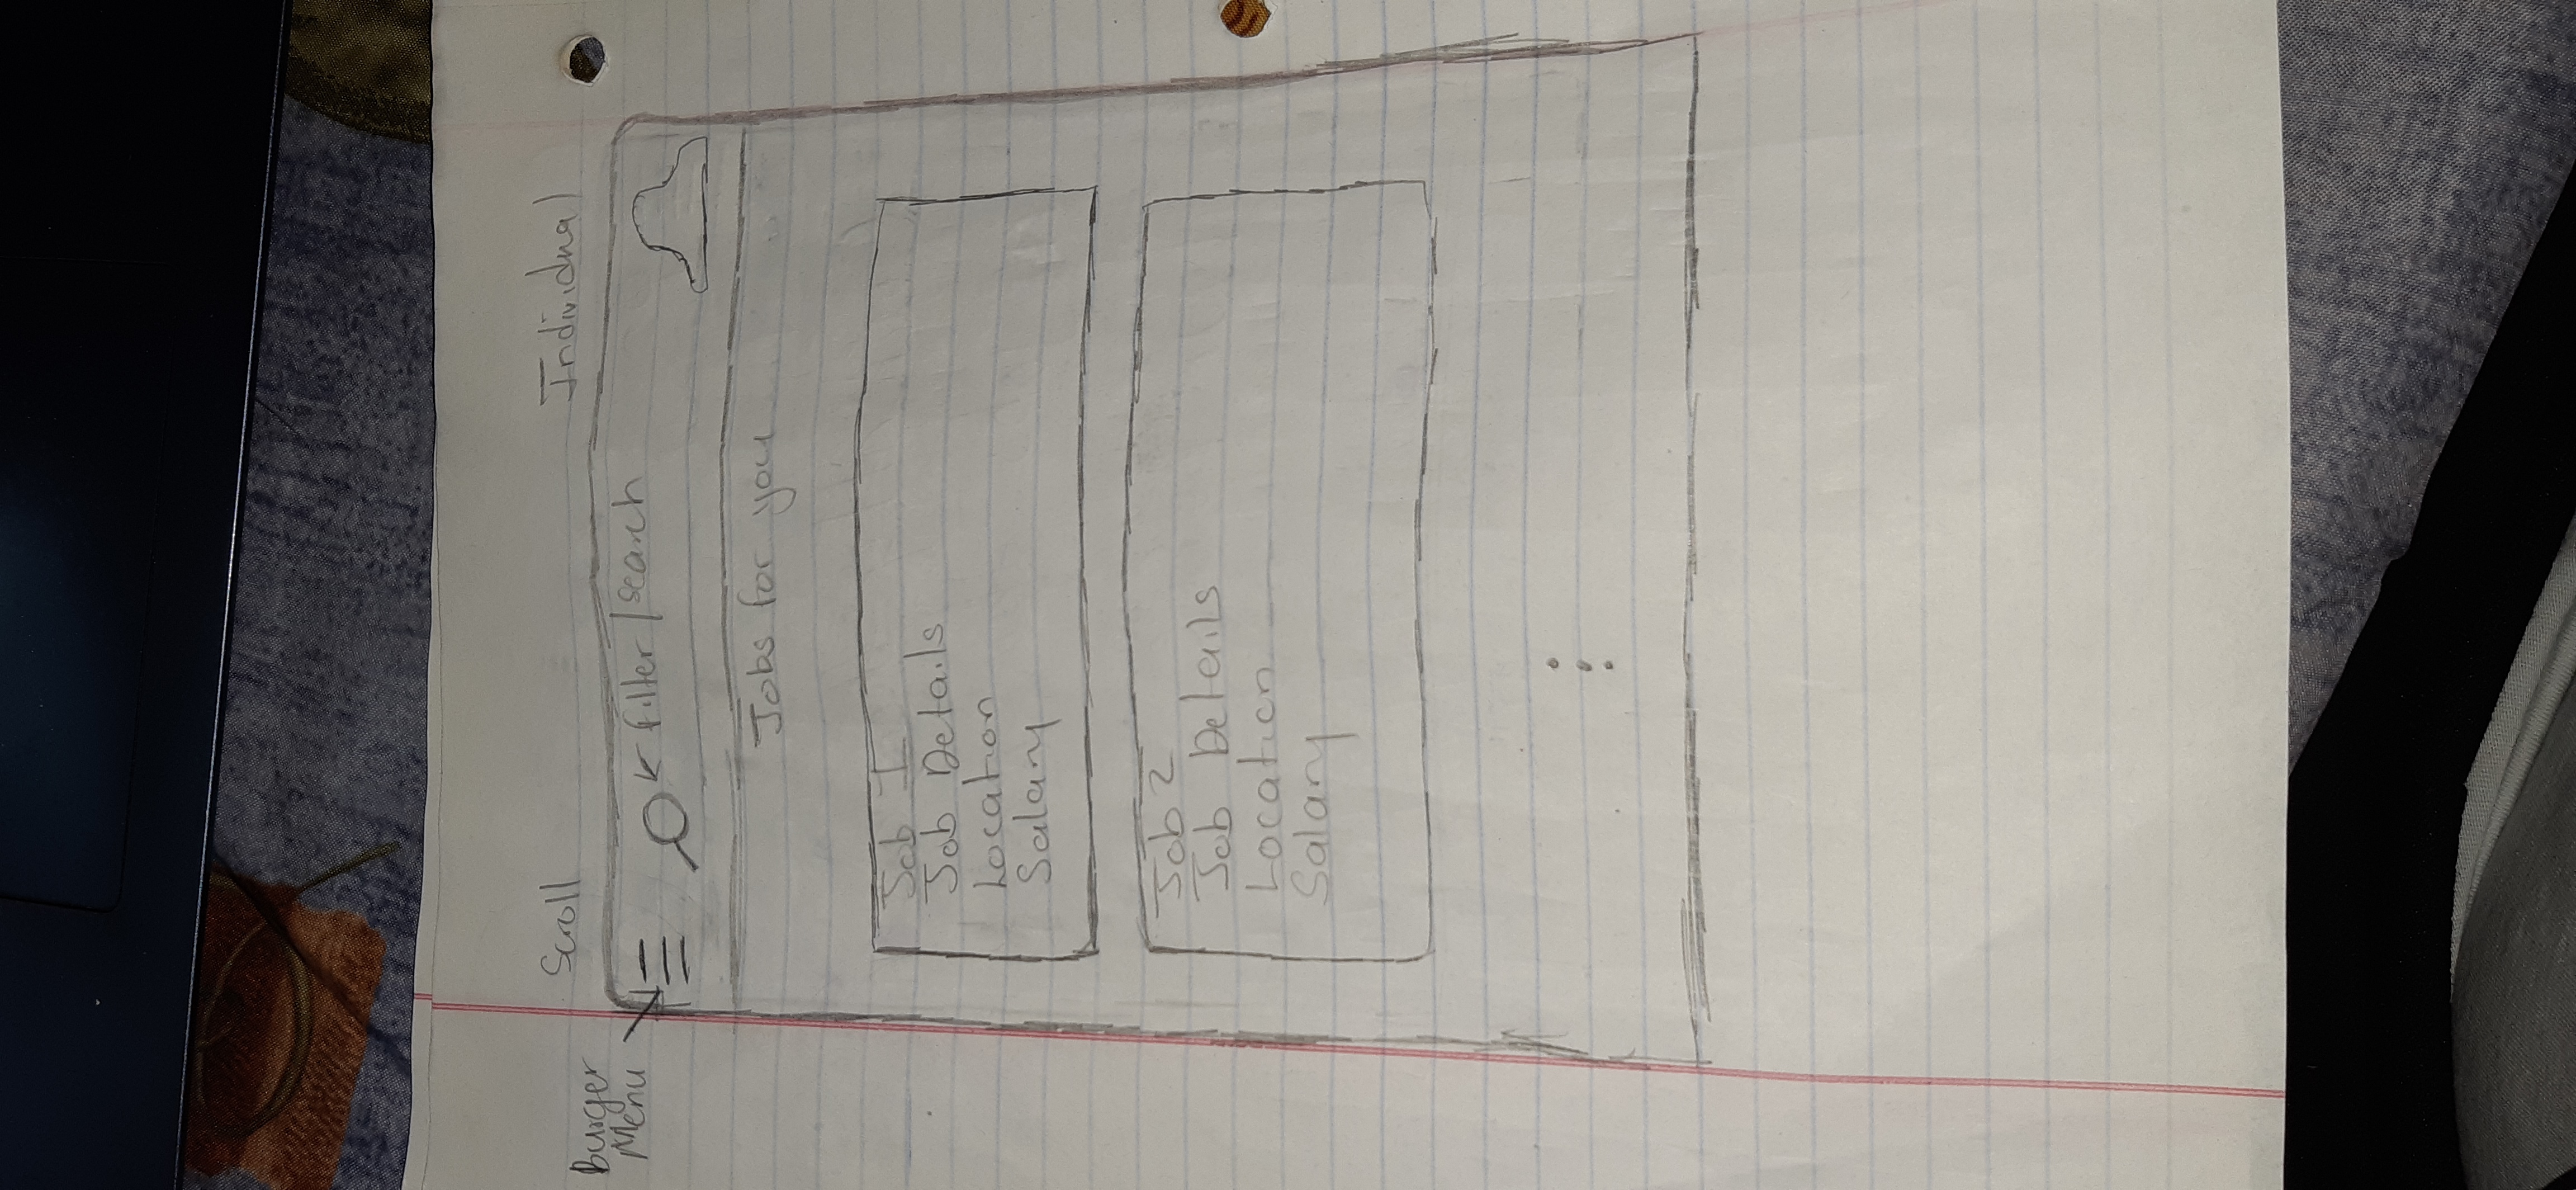 Scroll
Individual
Burger
Menu
filter/search
Jobs for you
Job 1
Job Details
Location
Salary
Job 2
Job Details
Location
Salary